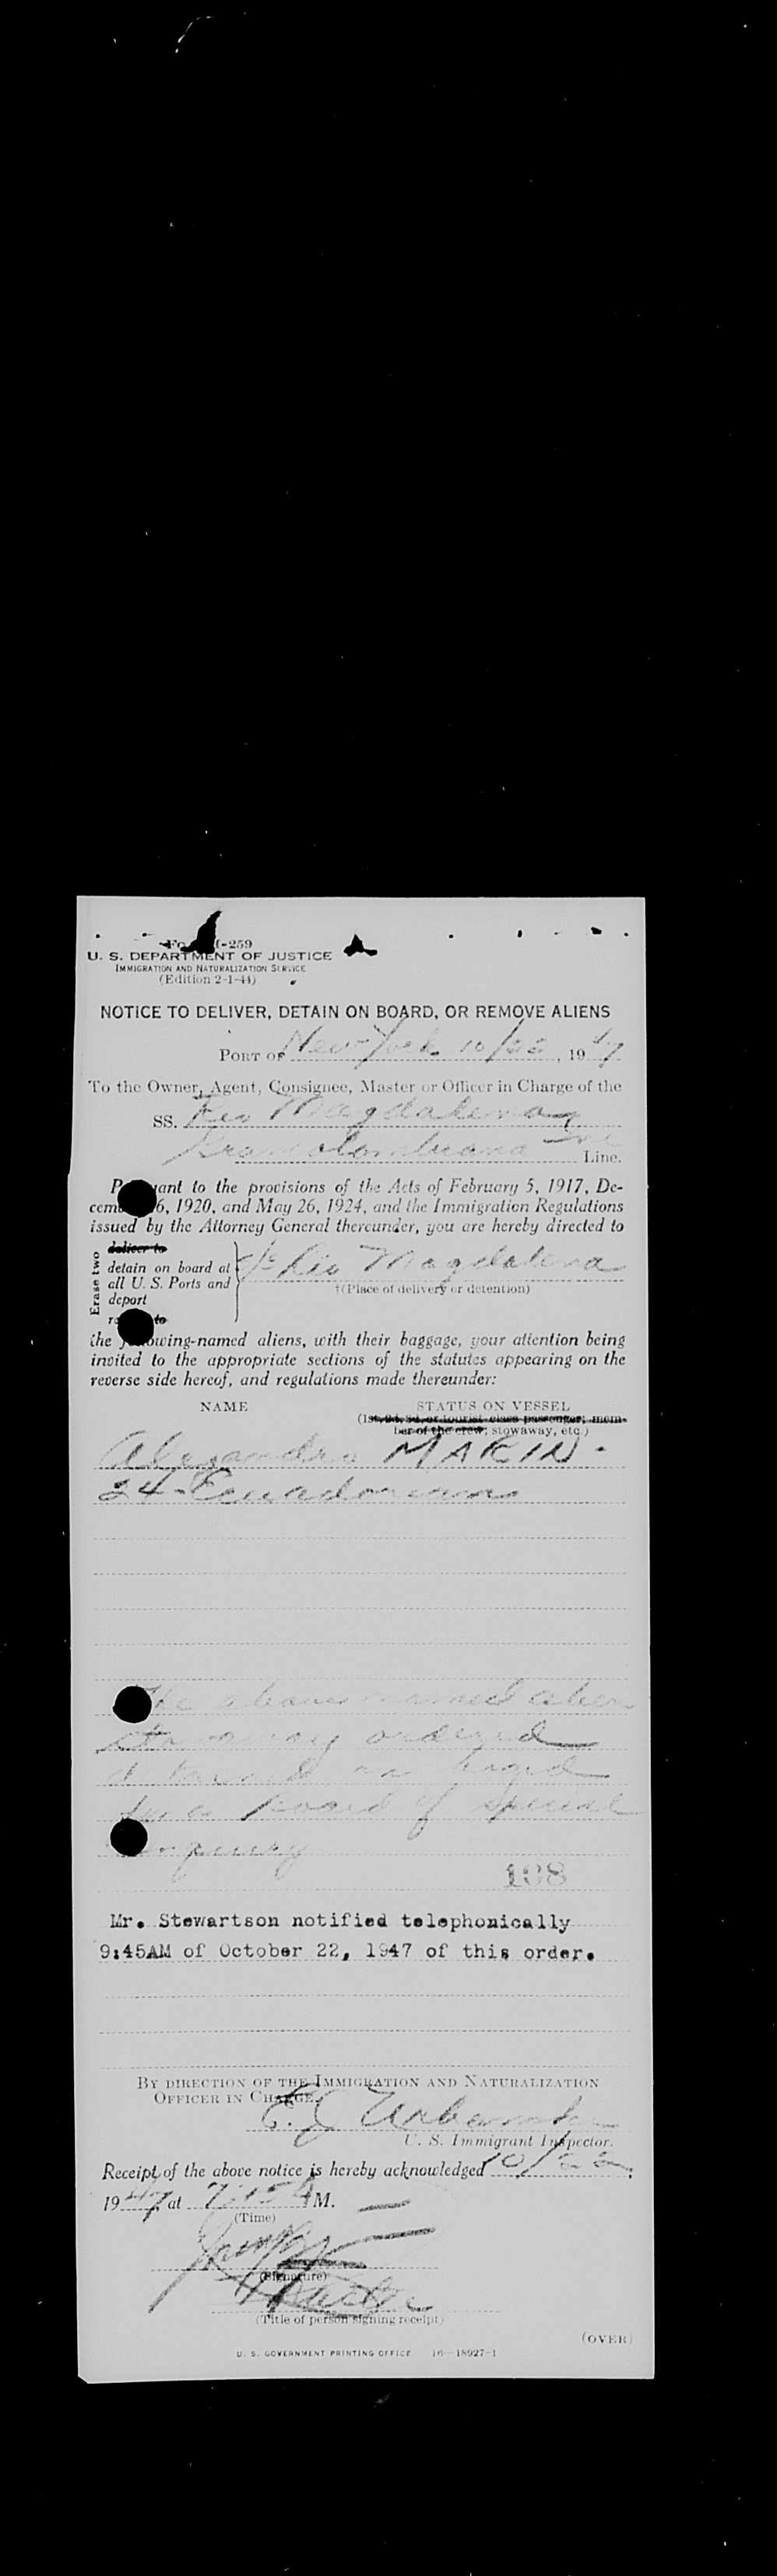 U. S. DEPARTMENT OF JUSTICE
IMMIGRATION AND NATURALIZATION SERVICE
(Edition 2-1-44)
NOTICE TO DELIVER, DETAIN ON BOARD, OR REMOVE ALIENS
PORT OF New York 10/22, 1947
To the Owner, Agent, Consignee, Master or Officer in Charge of the
SS. Rio Magdalena
Line.
to the provisions of the Acts of February 5, 1917, De-
6, 1920, and May 26, 1924, and the Immigration Regulations
issued by the Attorney General thereunder, you are hereby directed to
Erase two
deliver to
detain on board at
all U. S. Ports and
deport
Rio Magdalena
†(Place of delivery or detention)
the following-named aliens, with their baggage, your attention being
invited to the appropriate sections of the statutes appearing on the
reverse side hereof, and regulations made thereunder:
NAME STATUS ON VESSEL
(1st, 2d, 3d, or tourist class passenger; mem-
ber of the crew; stowaway, etc.)
Alejandro MARIN.
24 - Ecuadorian
The above named alien
stowaway ordered
detained on board
for a board of special
inquiry
108
Mr. Stewartson notified telephonically
9:45AM of October 22, 1947 of this order.
BY DIRECTION OF THE IMMIGRATION AND NATURALIZATION
OFFICER IN CHARGE.
U. S. Immigrant Inspector.
Receipt of the above notice is hereby acknowledged 10/22,
1947 at M.
(Time)
(Signature)
(Title of person signing receipt)
(OVER)
U. S. GOVERNMENT PRINTING OFFICE 16—18927-1